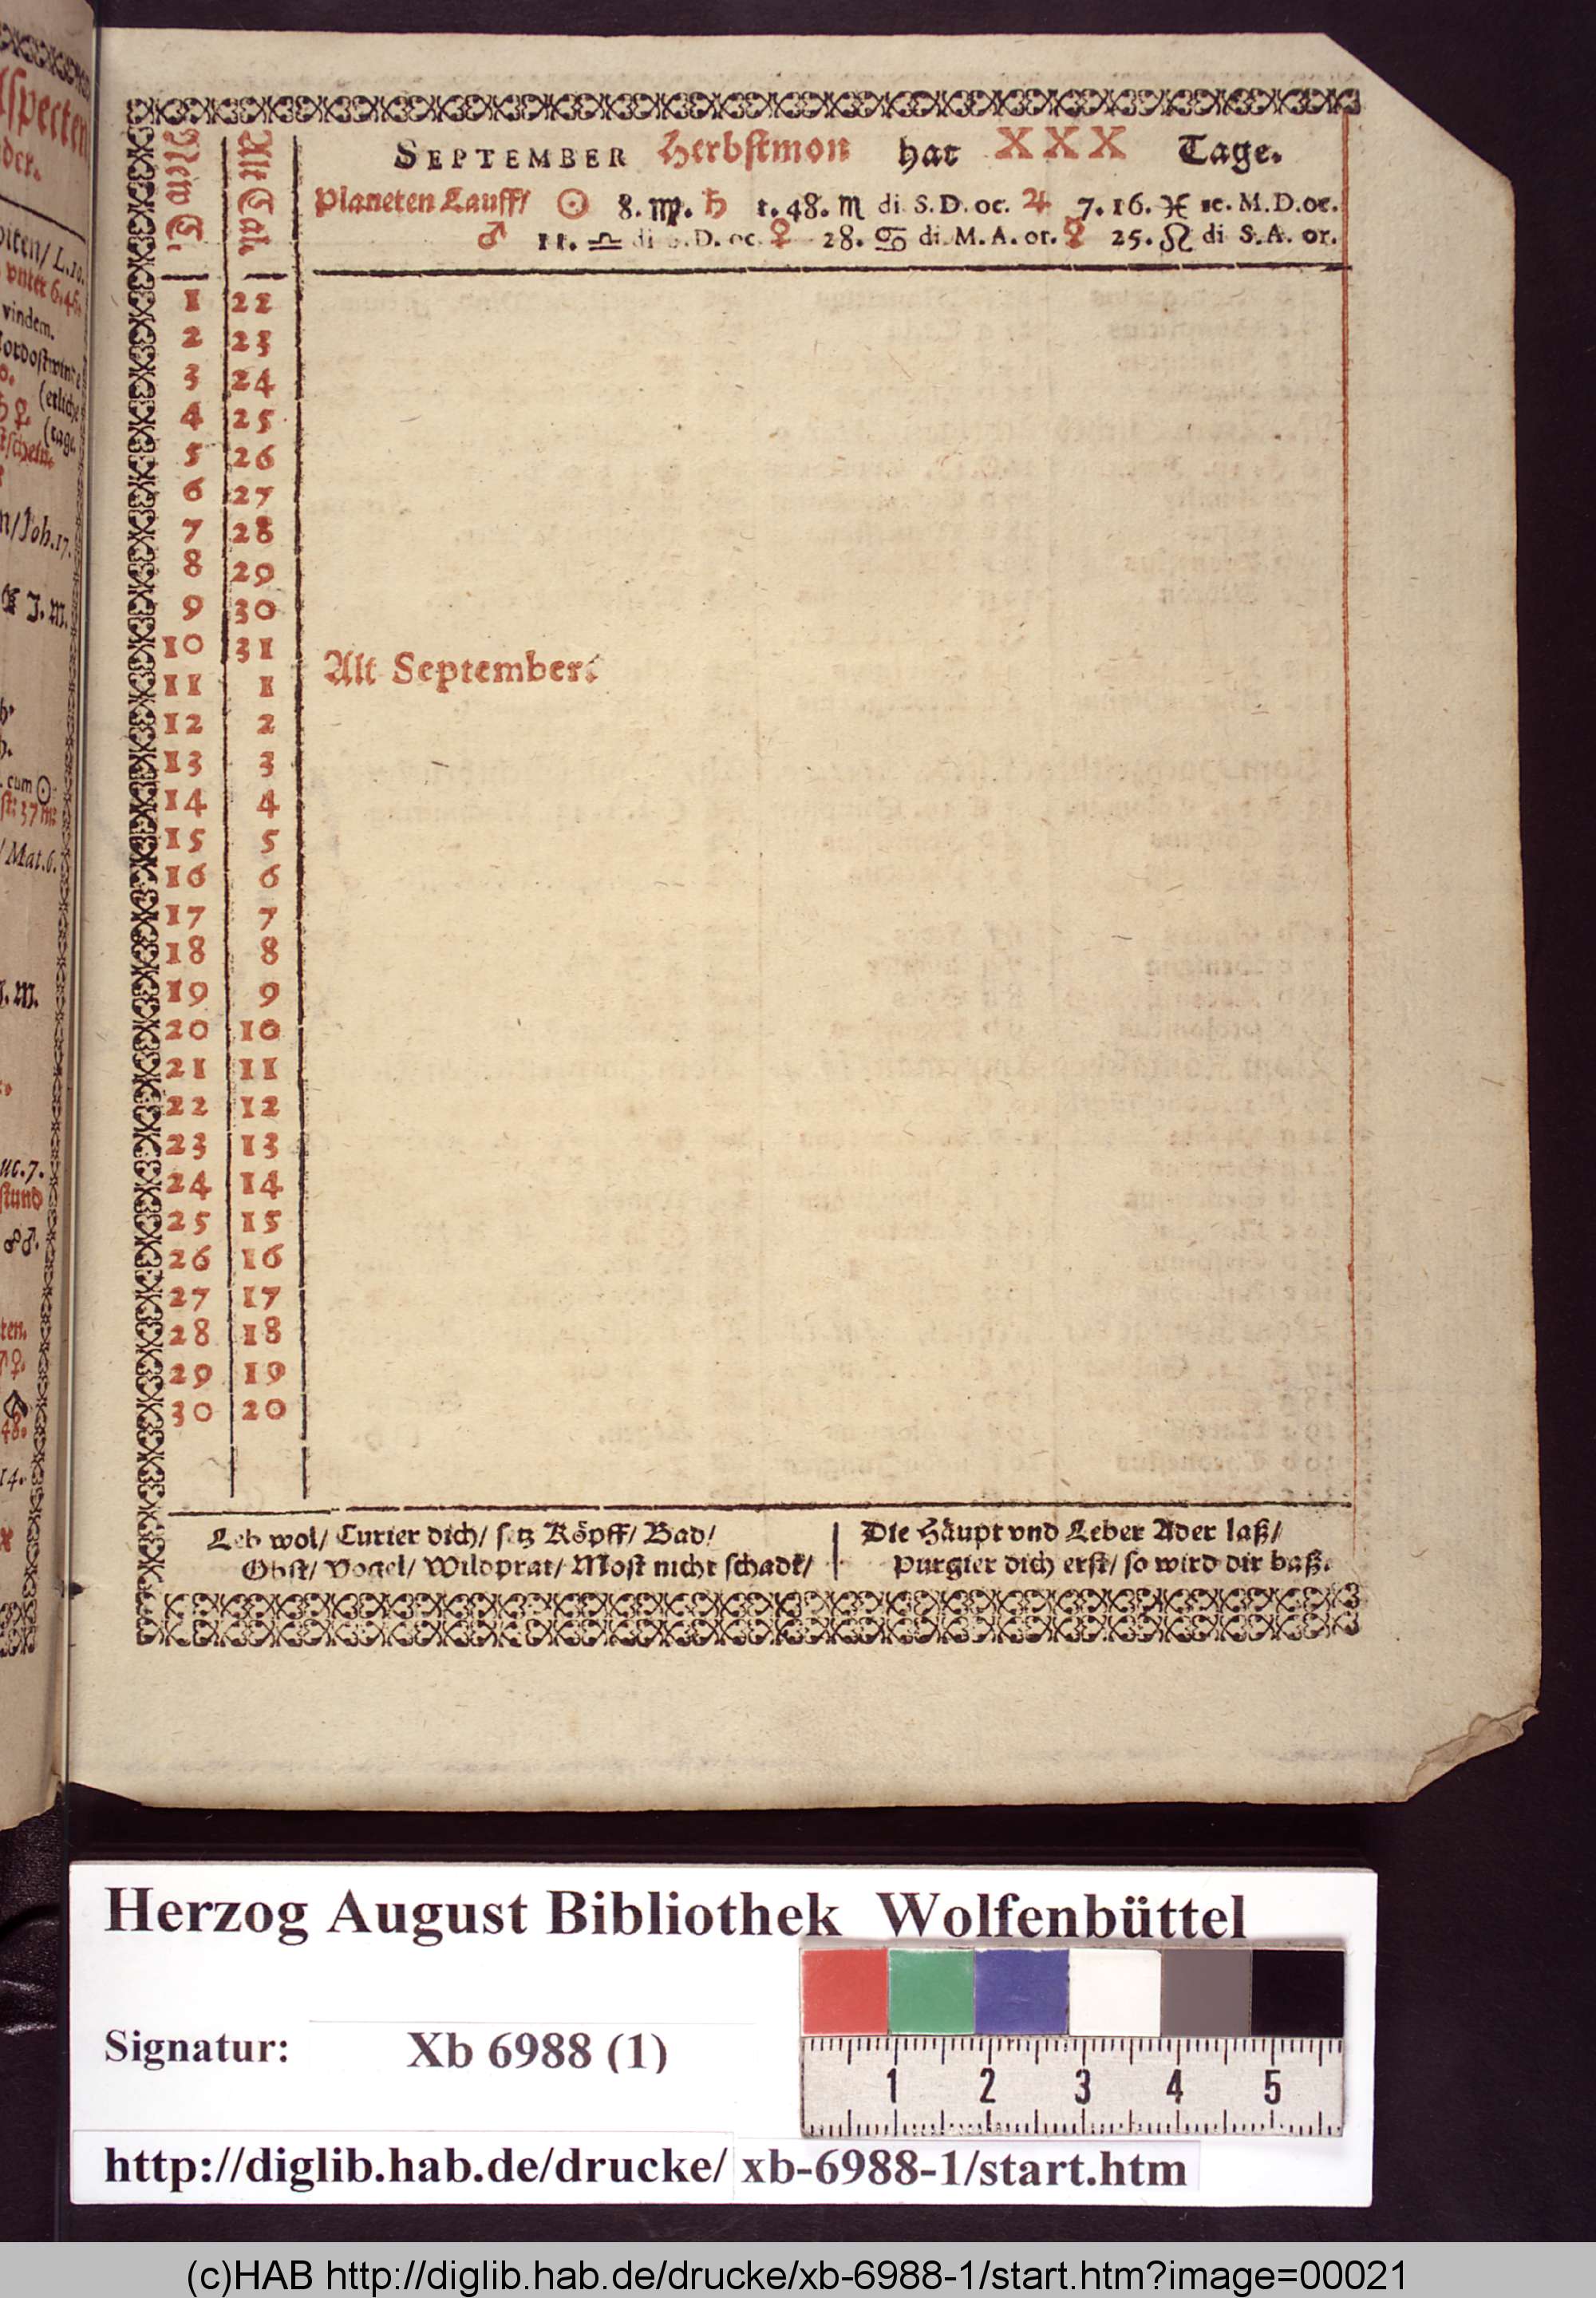 SEPTEMBER Herbstmon hat XXX Tage.
New C. Alt Cal.
Planeten Lauff/ ☉ 8. ♍. ♄ 1. 48. ♏ di. S. D. oc. ♃ 7. 16. ♓ re. M. D. oc.
♂ 11. ♎ di S. D. oc. ♀ 28. ♋ di. M. A. or. ☿ 25. ♌ di S. A. or.
1 22
2 23
3 24
4 25
5 26
6 27
7 28
8 29
9 30
10 31
Alt September.
11 1
12 2
13 3
14 4
15 5
16 6
17 7
18 8
19 9
20 10
21 11
22 12
23 13
24 14
25 15
26 16
27 17
28 18
29 19
30 20
Leb wol/ Curier dich/ setz Köpff/ Bad/
Obst/ Vogel/ Wildprat/ Most nicht schadt/
Die Häupt vnd Leber Ader laß/
Purgier dich erst/ so wird dir baß.
Joh. 17.
J. M.
cum ☉
/Mat. 6.
J. M.
uc. 7.
stund
48.
14.
Herzog August Bibliothek Wolfenbüttel
Signatur: Xb 6988 (1)
1 2 3 4 5
http://diglib.hab.de/drucke/ xb-6988-1/start.htm
(c)HAB http://diglib.hab.de/drucke/xb-6988-1/start.htm?image=00021